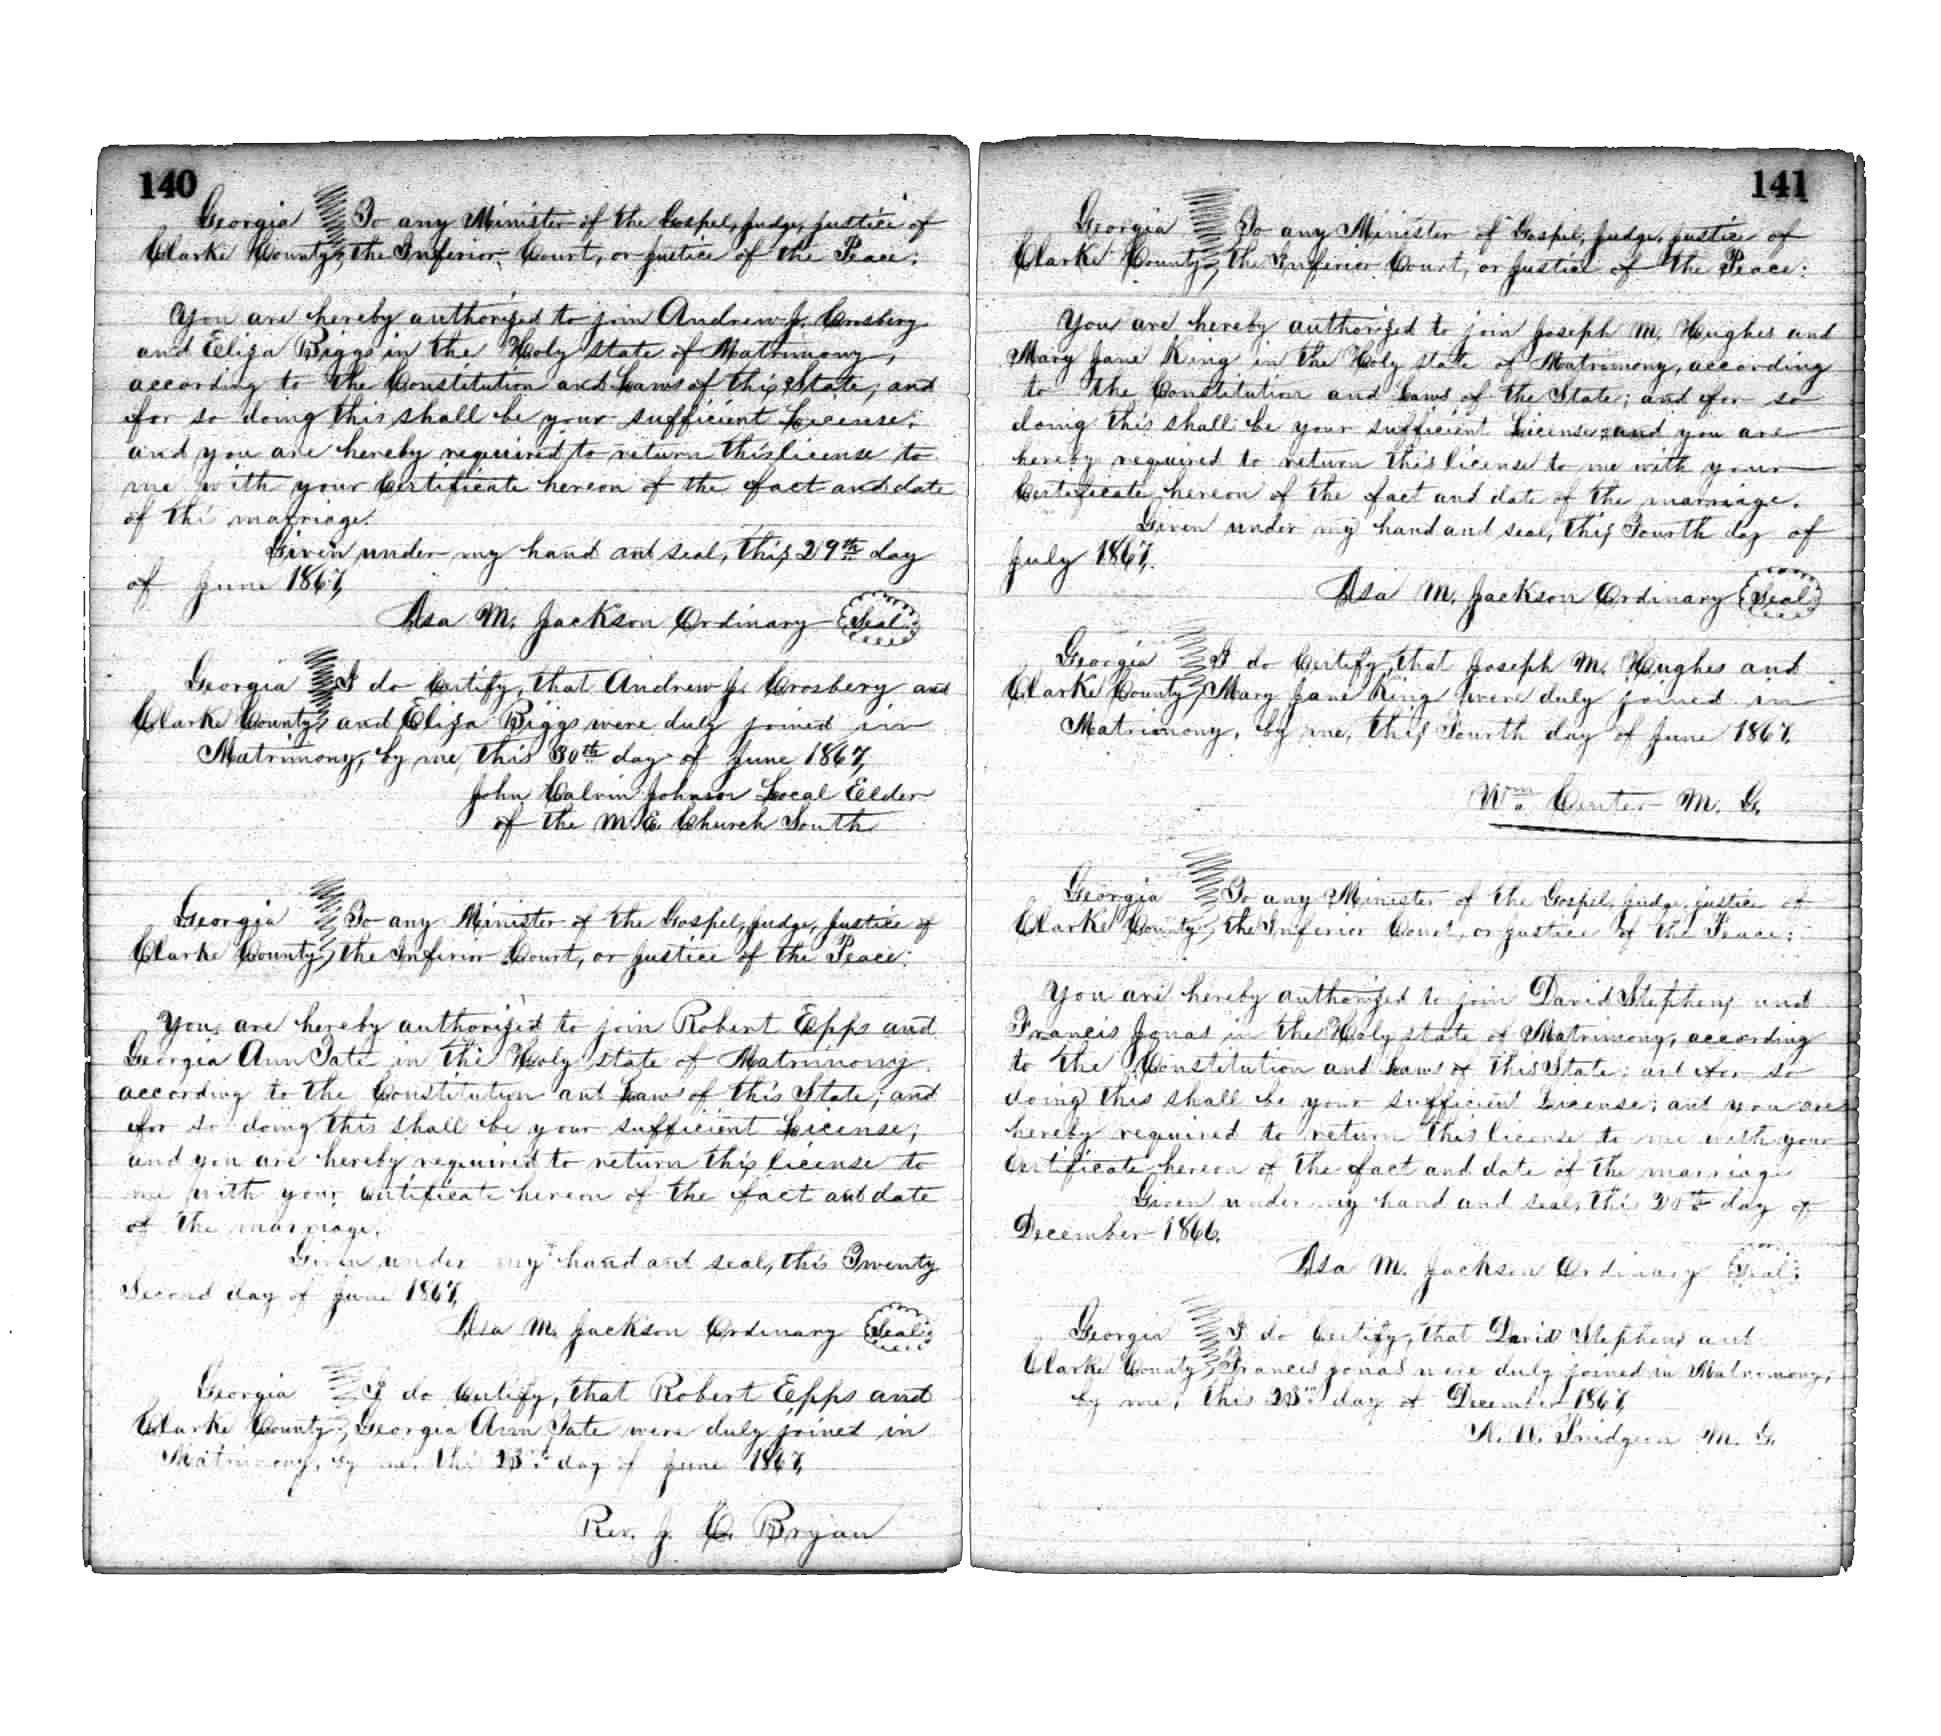 140
Georgia To any Minister of the Gospel, Judge, Justice of
Clarke County, the Inferior Court, or Justice of the Peace:
You are hereby authorized to join Andrew J. Crosbery
and Eliza Biggs in the Holy state of Matrimony,
according to the Constitution and Laws of this State, and
for so doing this shall be your sufficient License;
and you are hereby required to return this license to
me with your Certificate hereon of the fact and date
of the marriage.
Given under my hand and seal, this 29th day
of June 1867,
Asa M. Jackson Ordinary Seal
Georgia I do Certify, that Andrew J. Crosbery and
Clarke County, and Eliza Biggs were duly joined in
Matrimony, by me, this 30th day of June 1867,
John Calvin Johnson Local Elder
of the M. E. Church South
Georgia To any Minister of the Gospel, Judge, Justice of
Clarke County, the Inferior Court, or Justice of the Peace:
You are hereby authorized to join Robert Epps and
Georgia Ann Tate in the Holy state of Matrimony,
according to the Constitution and Laws of this State; and
for so doing this shall be your sufficient License;
and you are hereby required to return this license to
me with your Certificate hereon of the fact and date
of the marriage.
Given under my hand and seal, this Twenty
Second day of June 1867,
Asa M. Jackson Ordinary Seal
Georgia I do Certify, that Robert Epps and
Clarke County, Georgia Ann Tate were duly joined in
Matrimony, by me, this 23rd day of June 1867,
Rev. J. C. Bryan
141
Georgia To any Minister of Gospel, Judge, Justice of
Clarke County, the Inferior Court, or Justice of the Peace:
You are hereby authorized to join Joseph M. Hughes and
Mary Jane King in the Holy state of Matrimony, according
to the Constitution and Laws of the State; and for so
doing this shall be your sufficient License; and you are
hereby required to return this license to me with your
Certificate hereon of the fact and date of the marriage.
Given under my hand and seal, this Fourth day of
July 1867.
Asa M. Jackson Ordinary Seal
Georgia I do Certify, that Joseph M. Hughes and
Clarke County, Mary Jane King were duly joined in
Matrimony, by me, this Fourth day of June 1867,
Wm. Center M. G.
Georgia To any Minister of the Gospel, Judge, Justice of
Clarke County, the Inferior Court, or Justice of the Peace:
You are hereby authorized to join David Stephens and
Francis Jonas in the Holy state of Matrimony, according
to the Constitution and Laws of this State; and for so
doing this shall be your sufficient License; and you are
hereby required to return this license to me with your
Certificate hereon of the fact and date of the marriage
Given under my hand and seal, this 20th day of
December 1866.
Asa M. Jackson Ordinary Seal
Georgia I do Certify, that David Stephens and
Clarke County, Francis Jonas were duly joined in Matrimony,
by me, this 23rd day of December 1867,
Pridgeon M. G.